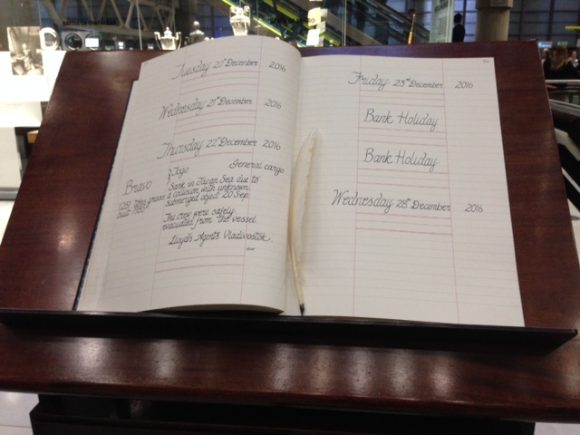 Tuesday 20th December 2016
Wednesday 21st December 2016
Thursday 22nd December 2016
Togo General cargo
Bravo Sank in Japan Sea due to
a collision with unknown
submerged object 20 Sep.
The crew were safely
evacuated from the vessel
Lloyd's Agents Vladivostok.
Friday 23rd December 2016
Bank Holiday
Bank Holiday
Wednesday 28th December 2016